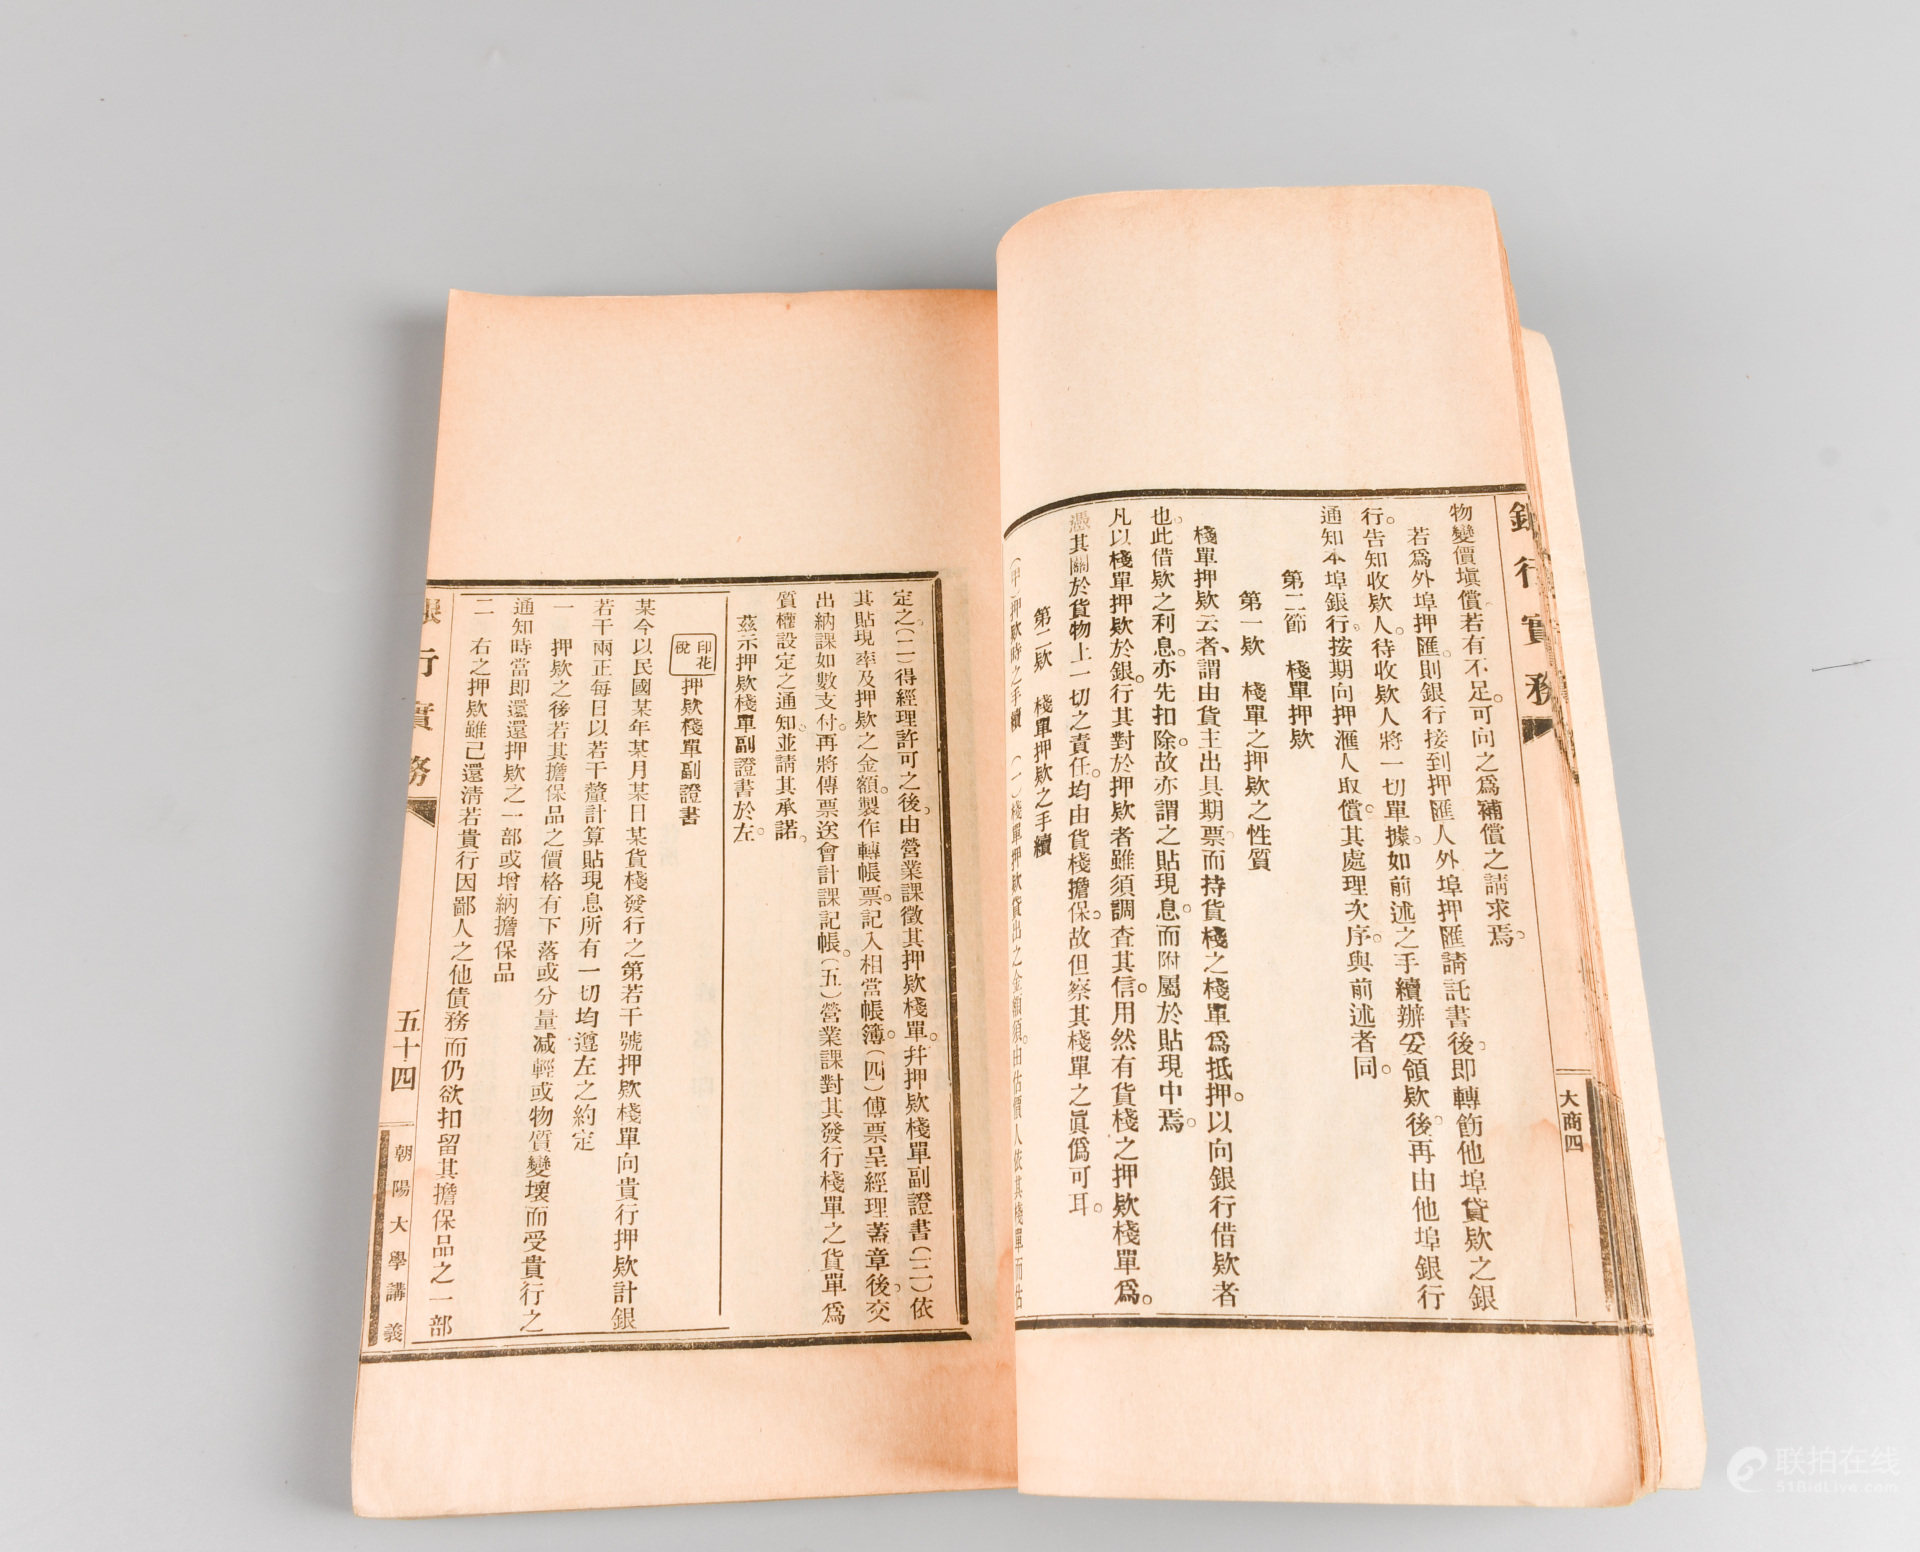 銀行實務
大商四
物變價塡償若有不足。可向之爲補償之請求焉。
若爲外埠押匯。則銀行接到押匯人外埠押匯請託書後。即轉飭他埠貸欵之銀
行。告知收欵人。待收欵人將一切單據。如前述之手續辦妥領欵後。再由他埠銀行
通知本埠銀行。按期向押滙人取償。其處理次序。與前述者同。
第二節 棧單押欵
第一欵 棧單之押欵之性質
棧單押欵云者、謂由貨主出具期票。而持貨棧之棧單爲抵押。以向銀行借欵者
也。此借欵之利息。亦先扣除。故亦謂之貼現息。而附屬於貼現中焉。
凡以棧單押欵於銀行。其對於押欵者雖須調查其信用。然有貨棧之押欵棧單爲。
憑其關於貨物上一切之責任。均由貨棧擔保。故但察其棧單之眞僞可耳。
第二欵 棧單押欵之手續
(甲)押欵時之手續 (一)棧單押欵貸出之金額須。由估價人依其棧單而估
定之(二)得經理許可之後。由營業課徵其押欵棧單。幷押欵棧單副證書(三)依
其貼現率及押欵之金額。製作轉帳票。記入相當帳簿。(四)傳票呈經理蓋章後。交
出納課如數支付。再將傳票送會計課記帳。(五)營業課對其發行棧單之貨單爲
質權設定之通知。並請其承諾。
茲示押欵棧單副證書於左。
印花
稅
押欵棧單副證書
某今以民國某年某月某日某貨棧發行之第若干號押欵棧單向貴行押欵計銀
若干兩正每日以若干釐計算貼現息所有一切均遵左之約定
一 押欵之後若其擔保品之價格有下落或分量減輕或物質變壞而受貴行之
通知時當即還還押欵之一部或增納擔保品
二 右之押欵雖已還清若貴行因鄙人之他債務而仍欲扣留其擔保品之一部
銀行實務
五十四
朝陽大學講義
联拍在线
51BidLive.com